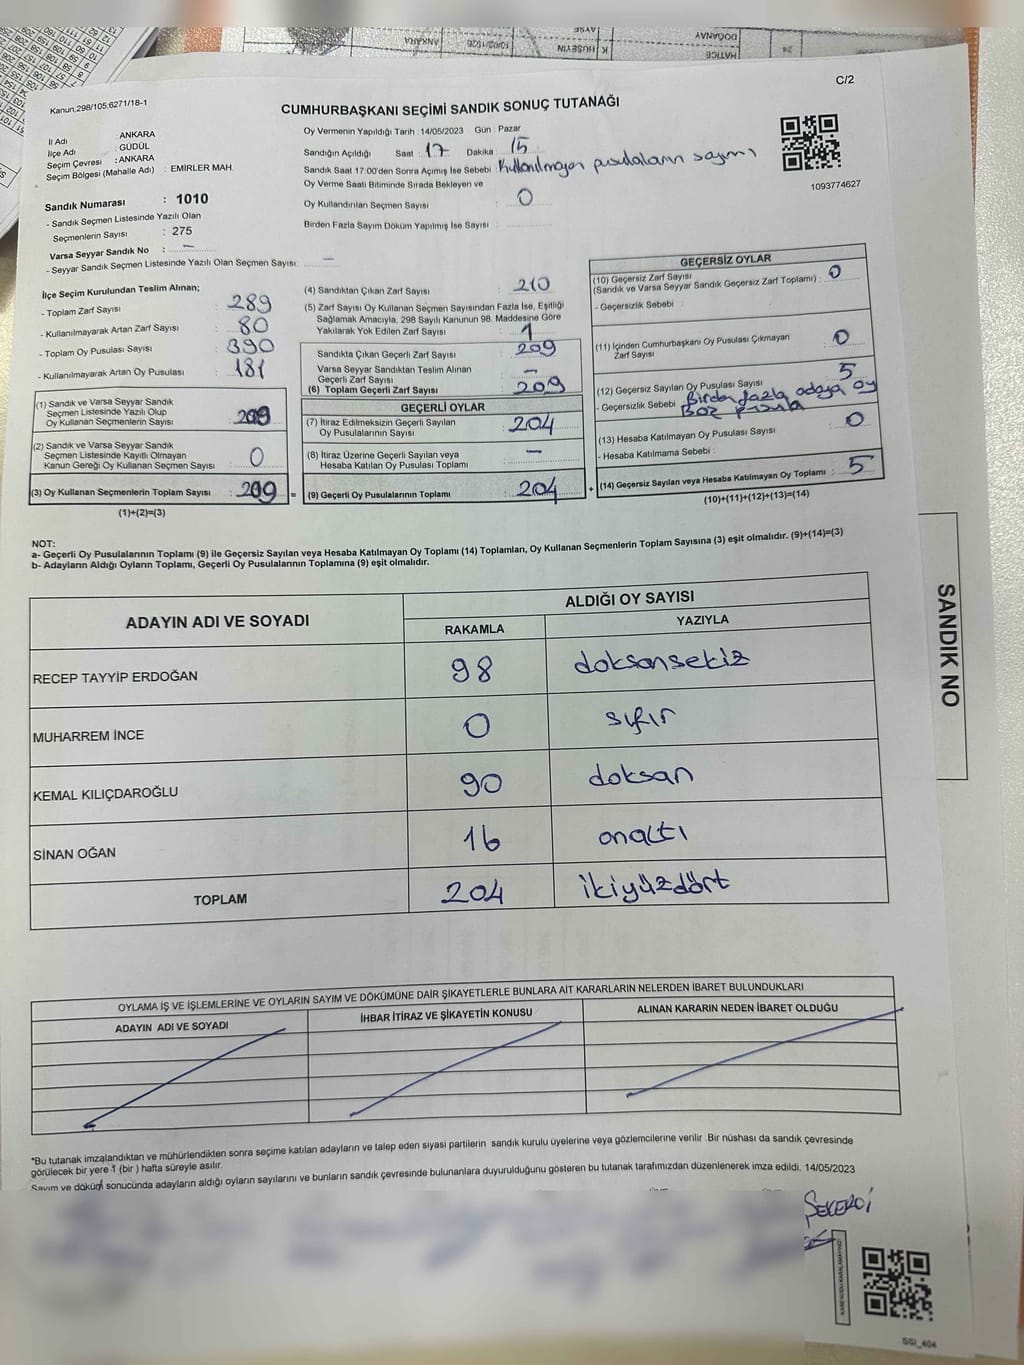 C/2
Kanun,298/105,6271/18-1
CUMHURBAŞKANI SEÇİMİ SANDIK SONUÇ TUTANAĞI
İl Adı : ANKARA
İlçe Adı : GÜDÜL
Seçim Çevresi : ANKARA
Seçim Bölgesi (Mahalle Adı) : EMİRLER MAH.
Oy Vermenin Yapıldığı Tarih : 14/05/2023 Gün : Pazar
Sandığın Açıldığı Saat : 17 Dakika : 15
Sandık Saat 17:00'den Sonra Açımış İse Sebebi : Kullanılmayan pusulaların sayımı
Oy Verme Saati Bitiminde Sırada Bekleyen ve
Oy Kullandırılan Seçmen Sayısı : 0
Birden Fazla Sayım Döküm Yapılmış İse Sayısı :
1093774627
Sandık Numarası : 1010
- Sandık Seçmen Listesinde Yazılı Olan
Seçmenlerin Sayısı : 275
Varsa Seyyar Sandık No : -
- Seyyar Sandık Seçmen Listesinde Yazılı Olan Seçmen Sayısı: -
İlçe Seçim Kurulundan Teslim Alınan;
- Toplam Zarf Sayısı : 289
- Kullanılmayarak Artan Zarf Sayısı : 80
- Toplam Oy Pusulası Sayısı : 390
- Kullanılmayarak Artan Oy Pusulası : 181
(1) Sandık ve Varsa Seyyar Sandık
Seçmen Listesinde Yazılı Olup
Oy Kullanan Seçmenlerin Sayısı : 209
(2) Sandık ve Varsa Seyyar Sandık
Seçmen Listesinde Kayıtlı Olmayan
Kanun Gereği Oy Kullanan Seçmen Sayısı : 0
(3) Oy Kullanan Seçmenlerin Toplam Sayısı : 209 =
(1)+(2)=(3)
(4) Sandıktan Çıkan Zarf Sayısı : 210
(5) Zarf Sayısı Oy Kullanan Seçmen Sayısından Fazla İse, Eşitliği
Sağlamak Amacıyla, 298 Sayılı Kanunun 98. Maddesine Göre
Yakılarak Yok Edilen Zarf Sayısı : 1
Sandıkta Çıkan Geçerli Zarf Sayısı : 209
Varsa Seyyar Sandıktan Teslim Alınan
Geçerli Zarf Sayısı : -
(6) Toplam Geçerli Zarf Sayısı : 209
GEÇERLİ OYLAR
(7) İtiraz Edilmeksizin Geçerli Sayılan
Oy Pusulalarının Sayısı : 204
(8) İtiraz Üzerine Geçerli Sayılan veya
Hesaba Katılan Oy Pusulası Toplamı : -
(9) Geçerli Oy Pusulalarının Toplamı : 204 +
GEÇERSİZ OYLAR
(10) Geçersiz Zarf Sayısı
(Sandık ve Varsa Seyyar Sandık Geçersiz Zarf Toplamı) : 0
- Geçersizlik Sebebi :
(11) İçinden Cumhurbaşkanı Oy Pusulası Çıkmayan
Zarf Sayısı : 0
(12) Geçersiz Sayılan Oy Pusulası Sayısı : 5
- Geçersizlik Sebebi : Birden fazla adaya oy
Boz pusula
(13) Hesaba Katılmayan Oy Pusulası Sayısı : 0
- Hesaba Katılmama Sebebi :
(14) Geçersiz Sayılan veya Hesaba Katılmayan Oy Toplamı : 5
(10)+(11)+(12)+(13)=(14)
NOT:
a- Geçerli Oy Pusulalarının Toplamı (9) ile Geçersiz Sayılan veya Hesaba Katılmayan Oy Toplamı (14) Toplamları, Oy Kullanan Seçmenlerin Toplam Sayısına (3) eşit olmalıdır. (9)+(14)=(3)
b- Adayların Aldığı Oyların Toplamı, Geçerli Oy Pusulalarının Toplamına (9) eşit olmalıdır.
ADAYIN ADI VE SOYADI ALDIĞI OY SAYISI
RAKAMLA YAZIYLA
RECEP TAYYİP ERDOĞAN 98 doksansekiz
MUHARREM İNCE 0 sıfır
KEMAL KILIÇDAROĞLU 90 doksan
SİNAN OĞAN 16 onaltı
TOPLAM 204 ikiyüzdört
SANDIK NO
OYLAMA İŞ VE İŞLEMLERİNE VE OYLARIN SAYIM VE DÖKÜMÜNE DAİR ŞİKAYETLERLE BUNLARA AİT KARARLARIN NELERDEN İBARET BULUNDUKLARI
ADAYIN ADI VE SOYADI İHBAR İTİRAZ VE ŞİKAYETİN KONUSU ALINAN KARARIN NEDEN İBARET OLDUĞU
*Bu tutanak imzalandıktan ve mühürlendikten sonra seçime katılan adayların ve talep eden siyasi partilerin sandık kurulu üyelerine veya gözlemcilerine verilir .Bir nüshası da sandık çevresinde
görülecek bir yere 1 (bir ) hafta süreyle asılır.
Sayım ve döküm sonucunda adayların aldığı oyların sayılarını ve bunların sandık çevresinde bulunanlara duyurulduğunu gösteren bu tutanak tarafımızdan düzenlenerek imza edildi. 14/05/2023
ŞEKERCİ